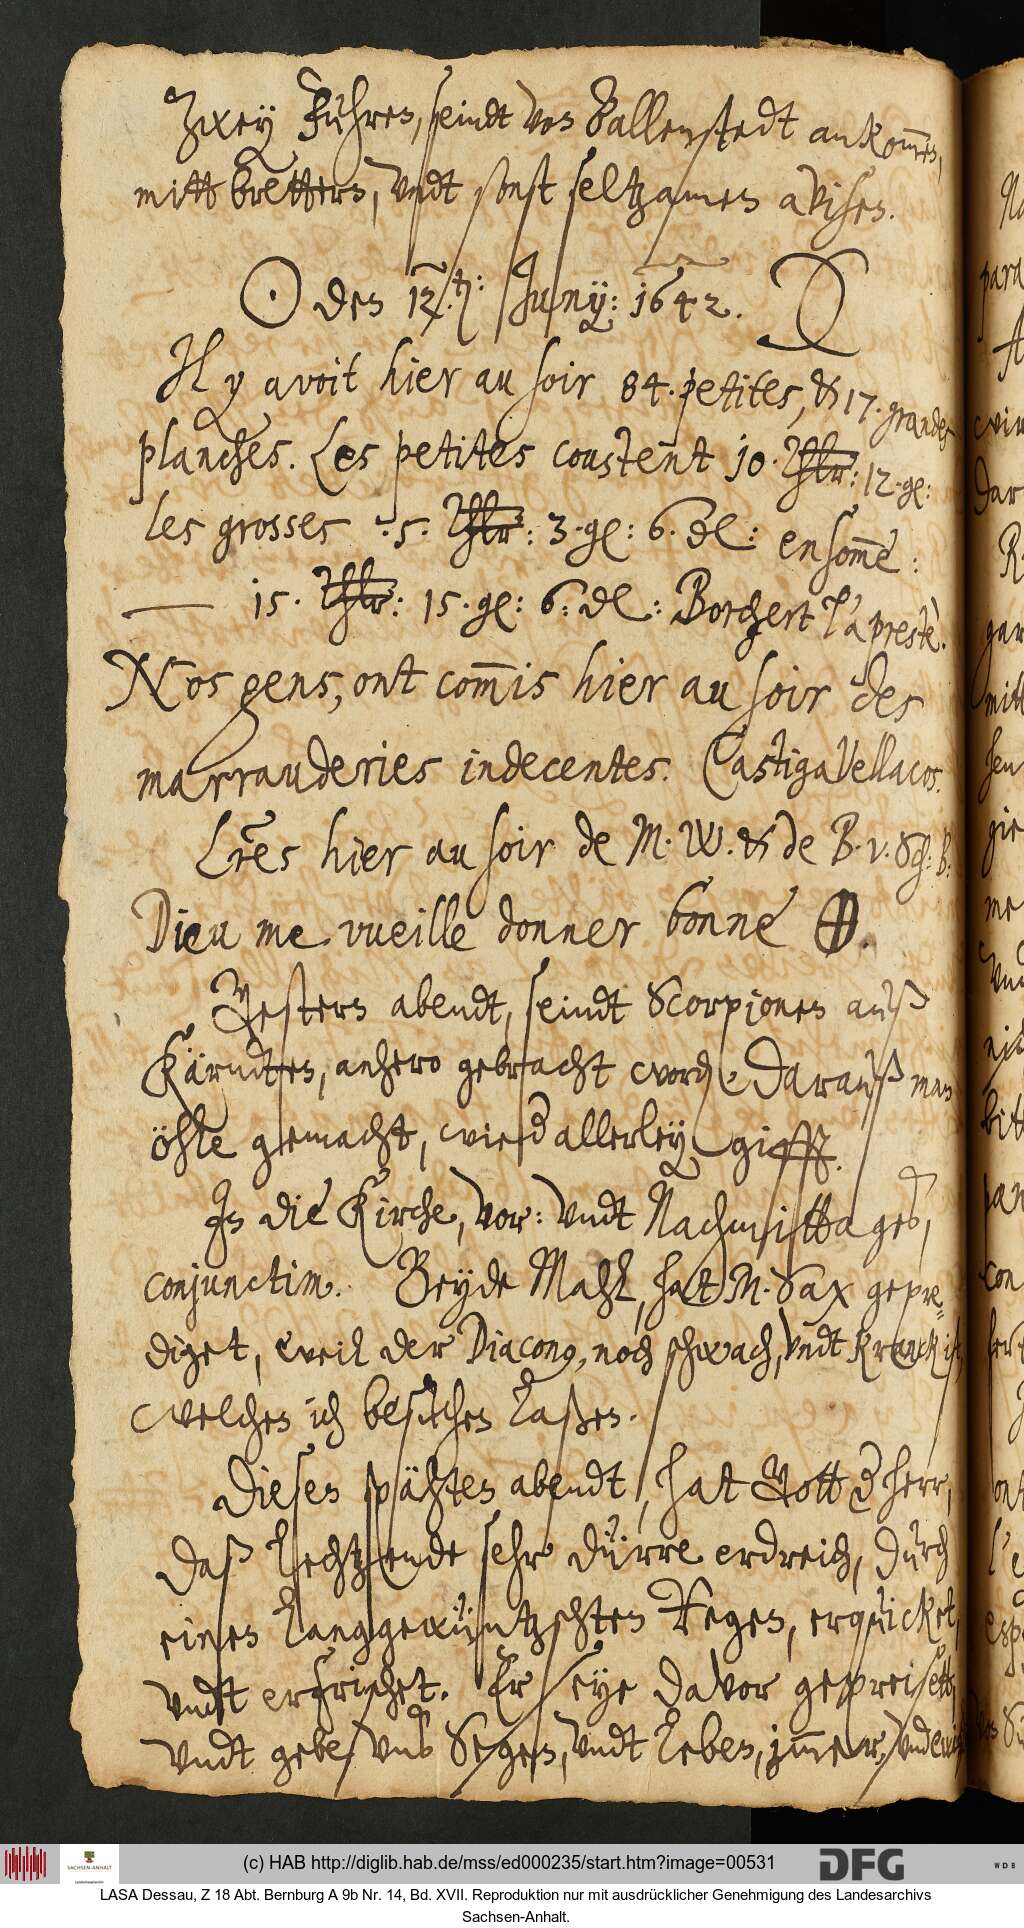 Zwey Fuhren, seindt von Ballenstedt ankom̄en,
mitt brettern, vndt sonst seltzamen avisen.
☉ den 12.ten: Junÿ: 1642.
Il y avoit hier au soir 84. petites, & 17. grandes
planches. Les petites coustent 10. Thlr: 12. gl:
les grosses .5. Thlr: 3. gl: 6. dl: en som̄e:
15. Thlr: 15. gl: 6. dl: Borchert l'a prestè.
Nos gens, ont com̄is hier au soir des
marrauderies indecentes. Castiga Vellacos.
Lr̄es hier au soir de M. W. & de B. v. Sch: B:
Dieu me vueille donner bonne
Gestern abendt, seindt Scorpionen auß
Kärndten, anhero gebracht word darauß man
öhle gemacht, wied allerley gifft.
In die Kirche, vor: vndt Nachmittages,
conjunctim. Beyde Mahl, hat M. Sax gepre=
diget, weil der Diaconus, noch schwach, vndt kranck ist,
welchen ich besuchen laßen.
Diesen spähten abendt, hat Gott d herr,
daß lechtzende sehr dürre erdreich, durch
einen langgewüntzschten Regen, erquicket,
vndt erfrischet. Er seye davor gepreisett,
vndt gebe vns Segen, vndt leben, im̄er, vnd ewig
(c) HAB http://diglib.hab.de/mss/ed000235/start.htm?image=00531
SACHSEN-ANHALT
DFG
WDB
LASA Dessau, Z 18 Abt. Bernburg A 9b Nr. 14, Bd. XVII. Reproduktion nur mit ausdrücklicher Genehmigung des Landesarchivs
Sachsen-Anhalt.